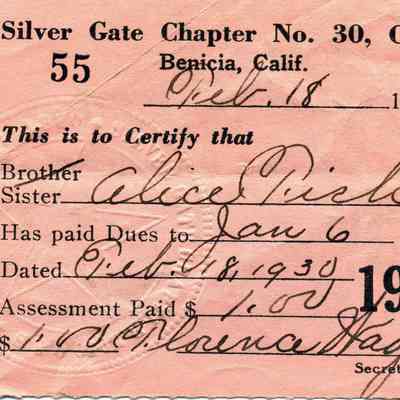 Silver Gate Chapter No. 30, O
55 Benicia, Calif.
Feb. 18 1
This is to Certify that
Brother
Sister Alice Fish
Has paid Dues to Jan 6
Dated Feb. 18, 1930 19
Assessment Paid $ 1.00
$ 1.00 Florence Wag
Secret